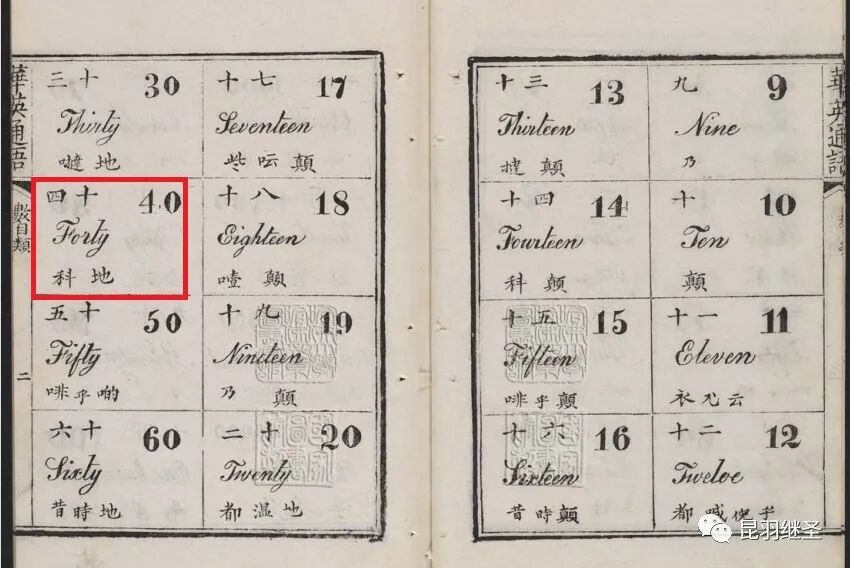 華英通語
九 9
Nine
乃
十 10
Ten
顛
十一 11
Eleven
衣 云
十二 12
Twelve
都 乎
十三 13
Thirteen
撻顛
十四 14
Fourteen
科顛
十五 15
Fifteen
啡乎顛
十六 16
Sixteen
昔時顛
十七 17
Seventeen
些呍顛
十八 18
Eighteen
噎顛
十九 19
Nineteen
乃顛
二十 20
Twenty
都温地
三十 30
Thirty
噠地
四十 40
Forty
科地
五十 50
Fifty
啡乎啲
六十 60
Sixty
昔時地
華英通語
數目類
二
昆羽继圣